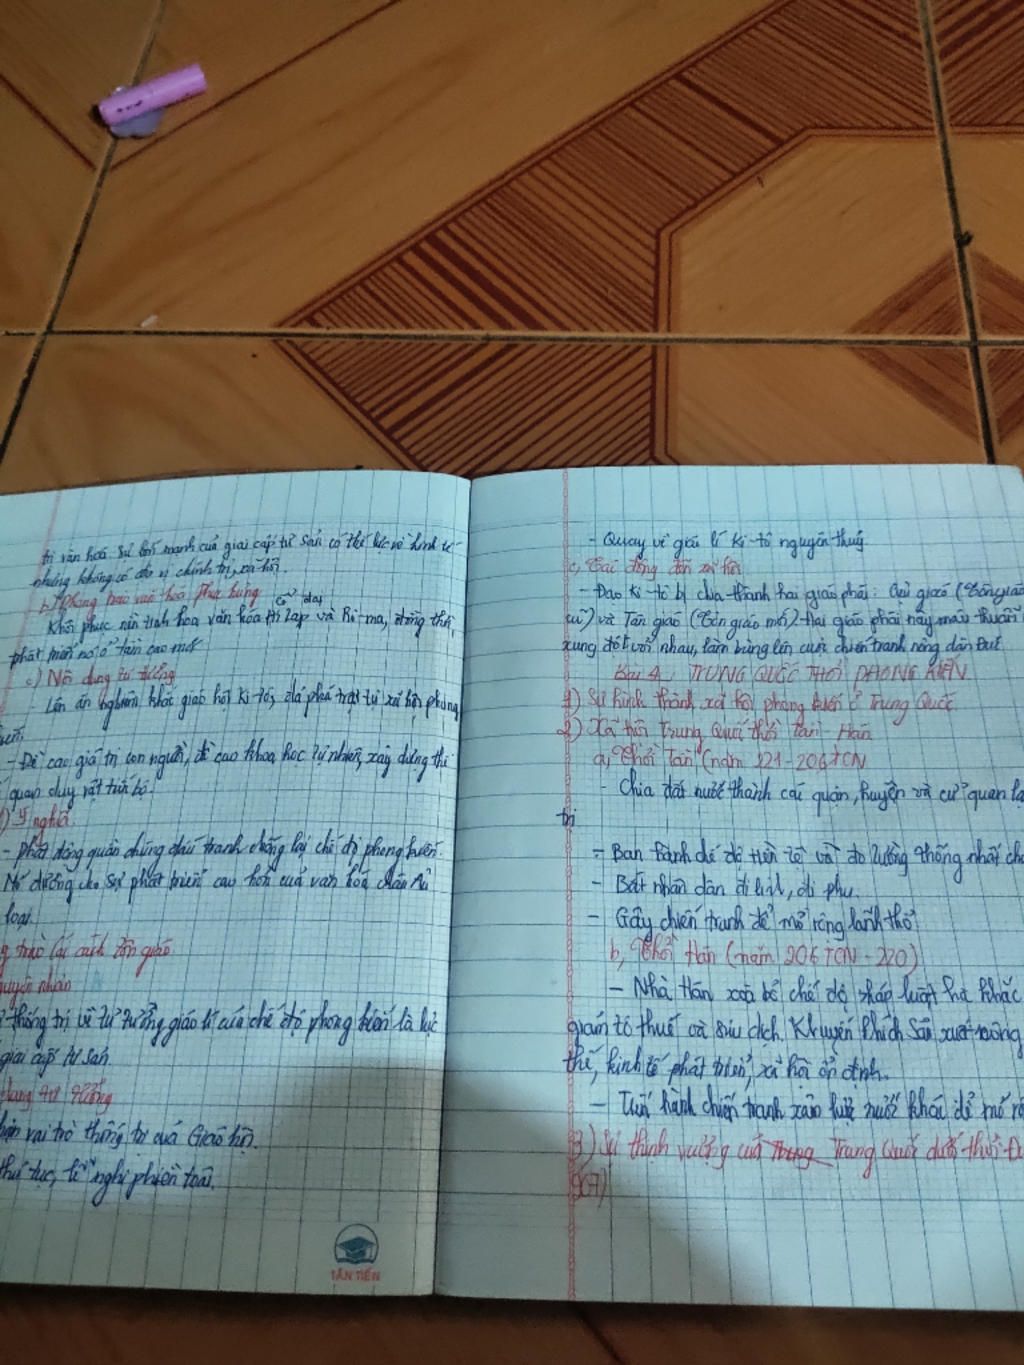 trị văn hoá. Sự lớn mạnh của giai cấp tư sản có thế lực về kinh tế
nhưng không có địa vị chính trị, xã hội.
b) Phong trào văn hoá Phục hưng
Cổ đại
Khôi phục nền tinh hoa văn hóa Hi Lạp và Rô-ma, đồng thời,
phát triển nó ở tầm cao mới
c) Nội dung tư tưởng
- Lên án nghiêm khắc giáo hội Ki-tô, đả phá trật tự xã hội phong
kiến.
- Đề cao giá trị con người, đề cao khoa học tự nhiên, xây dựng thế
quan duy vật tiến bộ.
d) Ý nghĩa.
- Phát động quần chúng đấu tranh chống lại chế độ phong kiến.
Mở đường cho sự phát triển cao hơn của văn hóa châu Âu
loại.
g trào cải cách tôn giáo
nguyên nhân
thống trị về tư tưởng giáo lí của chế độ phong kiến là lực
giai cấp tư sản.
dung tư tưởng
vai trò thống trị của Giáo hội.
thủ tục, lễ nghi phiền toái.
TÂN TIẾN
- Quay về giáo lí Ki-tô nguyên thuỷ
c, Tác động đến xã hội
- Đạo Ki-tô bị chia thành hai giáo phái: Cựu giáo (Tôn giáo
cũ) và Tân giáo (Tôn giáo mới). Hai giáo phái này mâu thuẫn
xung đột với nhau, làm bùng lên cuộc chiến tranh nông dân Đức
Bài 4: TRUNG QUỐC THỜI PHONG KIẾN
1) Sự hình thành xã hội phong kiến ở Trung Quốc.
2) Xã hội Trung Quốc thời Tần - Hán
a, Thời Tần (năm 221-206TCN
- Chia đất nước thành các quận, huyện và cử quan lạ
trị
- Ban hành chế độ tiền tệ và đo lường thống nhất ch
- Bắt nhân dân đi lính, đi phu.
- Gây chiến tranh để mở rộng lãnh thổ
b, Thời Hán (năm 206TCN - 220)
- Nhà Hán xoá bỏ chế độ pháp luật hà khắc
giảm tô thuế và sưu dịch. Khuyến khích Sản xuất nông
thế, kinh tế phát triển, xã hội ổn định.
- Tiến hành chiến tranh xâm lược nước khác để mở rộ
3) Sự thịnh vượng của Trung Quốc dưới thời Đư
907)